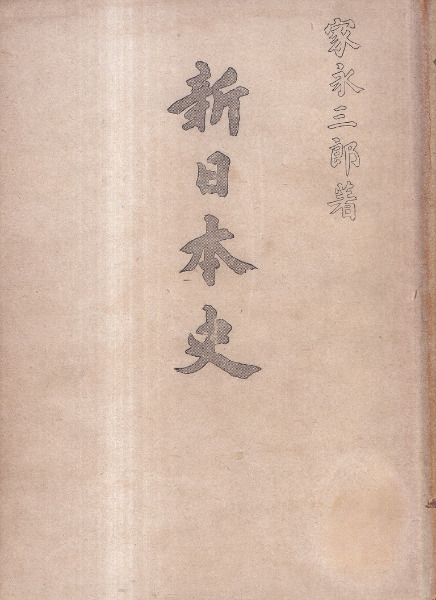 家永三郎著
新日本史